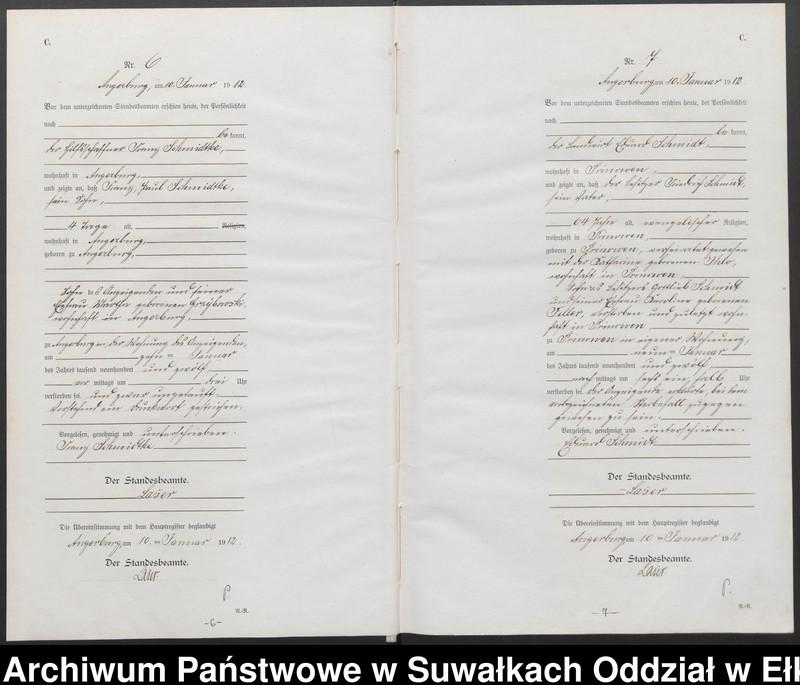 C.
Nr. 6
Angerburg, am 10. Januar 1912.
Vor dem unterzeichneten Standesbeamten erschien heute, der Persönlichkeit
nach
be kannt,
der Hilfsschaffner Franz Schmidtke,
wohnhaft in Angerburg,
und zeigte an, daß Franz, Paul Schmidtke,
sein Sohn,
4 Tage alt, Religion,
wohnhaft in Angerburg,
geboren zu Angerburg,
Sohn des Anzeigenden und seiner
Ehefrau Martha geborenen Grzybowski,
wohnhaft in Angerburg,
zu Angerburg in der Wohnung des Anzeigenden,
am zehn ten Januar
des Jahres tausend neunhundert und zwölf
vor mittags um drei Uhr
verstorben sei, und zwar ungetauft.
Vorstehend ein Druckwort gestrichen.
Vorgelesen, genehmigt und unterschrieben.
Franz Schmidtke
Der Standesbeamte.
Laser
Die Übereinstimmung mit dem Hauptregister beglaubigt
Angerburg, am 10 ten Januar 1912.
Der Standesbeamte.
P.
N.-R.
-6-
C.
Nr. 7
Angerburg am 10. Januar 1912.
Vor dem unterzeichneten Standesbeamten erschien heute, der Persönlichkeit
nach
be kannt,
der Landwirt Eduard Schmidt,
wohnhaft in
und zeigte an, daß der Besitzer Friedrich Schmidt,
sein Vater,
64 Jahre alt, evangelischer Religion,
wohnhaft in
geboren zu verheiratet gewesen
mit der Katharine geborenen
wohnhaft in
Sohn des Besitzers Gottlieb Schmidt
und seiner Ehefrau Karoline geborenen
verstorben und zuletzt wohn-
haft in
zu in eigener Wohnung,
am neun ten Januar
des Jahres tausend neunhundert und zwölf
nach mittags um sechs ein halb Uhr
verstorben sei. Der Anzeigende erklärte, bei dem
vorbezeichneten Sterbefall zugegen
gewesen zu sein.
Vorgelesen, genehmigt und unterschrieben.
Eduard Schmidt
Der Standesbeamte.
Laser
Die Übereinstimmung mit dem Hauptregister beglaubigt
Angerburg am 10 ten Januar 1912.
Der Standesbeamte.
P.
N.-R.
-7-
Archiwum Państwowe w Suwałkach Oddział w Ełk